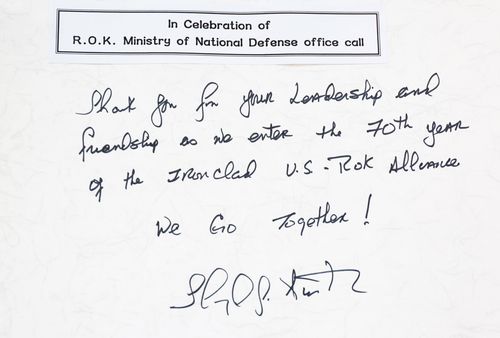 In Celebration of
R.O.K. Ministry of National Defense office call
Thank you for your Leadership and
friendship as we enter the 70th year
of the Ironclad U.S-ROK Alliance
We Go Together!